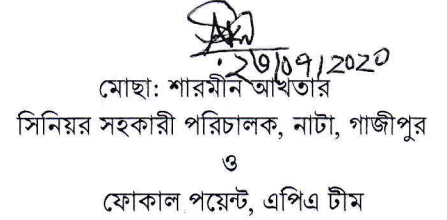 ২৩/০৭/2020
মোছা: শারমীন আখতার
সিনিয়র সহকারী পরিচালক, নাটা, গাজীপুর
ও
ফোকাল পয়েন্ট, এপিএ টীম